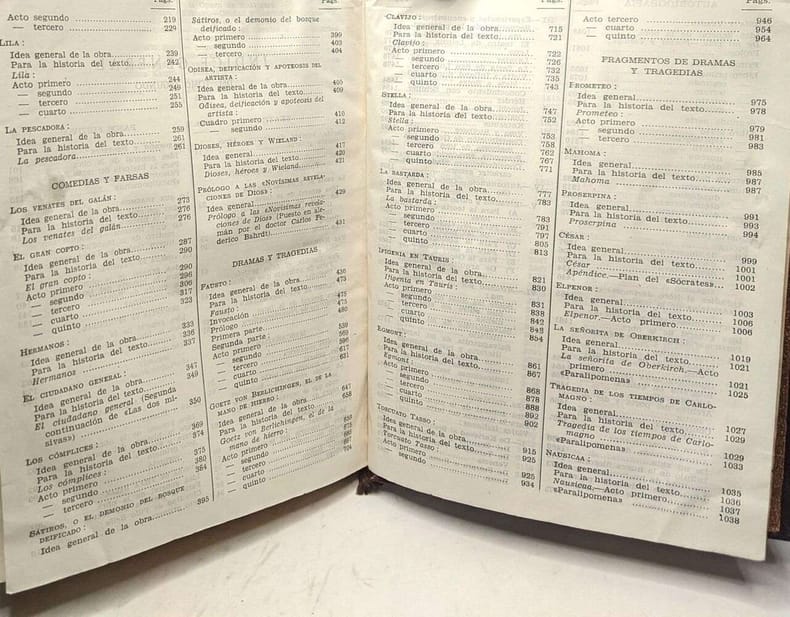 Págs.
Acto segundo 219
— tercero 229
LILA :
Idea general de la obra 239
Para la historia del texto 242
Lila :
Acto primero 244
— segundo 249
— tercero 251
— cuarto 255
LA PESCADORA :
Idea general de la obra 259
Para la historia del texto 261
La pescadora 261
COMEDIAS Y FARSAS
LOS VENATES DEL GALÁN :
Idea general de la obra 273
Para la historia del texto 276
Los venates del galán 276
EL GRAN COPTO :
Idea general de la obra 287
Para la historia del texto 290
El gran copto :
Acto primero 290
— segundo 296
— tercero 306
— cuarto 317
— quinto 323
HERMANOS :
Idea general de la obra 333
Para la historia del texto 336
Hermanos 337
EL CIUDADANO GENERAL :
Idea general de la obra 347
Para la historia del texto 349
El ciudadano general (Segunda
continuación de «Las dos mi-
sivas» 350
LOS CÓMPLICES :
Idea general de la obra 369
Para la historia del texto 374
Los cómplices :
Acto primero 375
— segundo 380
— tercero 384
SÁTIROS, O EL DEMONIO DEL BOSQUE
DEIFICADO :
Idea general de la obra 395
Sátiros, o el demonio del bosque
deificado :
Acto primero 399
— segundo 403
— tercero 404
ODISEA, DEIFICACIÓN Y APOTEOSIS DEL
ARTISTA :
Idea general de la obra
Para la historia del texto 409
Odisea, deificación y apoteosis del
artista :
Cuadro primero 410
— segundo 412
DIOSES, HÉROES Y WIELAND :
Idea general 417
Para la historia del texto 420
Dioses, héroes y Wieland 421
PRÓLOGO A LAS «NOVÍSIMAS REVELA-
CIONES DE DIOS» :
Idea general 429
Prólogo a las «Novísimas revela-
ciones de Dios» (Puesto en ale-
mán por el doctor Carlos Fe-
derico Bahrdt) 431
DRAMAS Y TRAGEDIAS
FAUSTO :
Idea general de la obra
Para la historia del texto 473
Fausto :
Invocación 475
Prólogo 475
Primera parte 480
Segunda parte 539
Acto primero 569
— segundo 596
— tercero 617
— cuarto 631
— quinto
GOETZ VON BERLICHINGEN, EL DE LA
MANO DE HIERRO :
Idea general de la obra 647
Para la historia del texto 658
Goetz von Berlichingen, el de la
mano de hierro :
Acto primero
— segundo
— tercero
— cuarto
— quinto 704
Págs.
CLAVIJO :
Idea general de la obra 715
Para la historia del texto 721
Clavijo :
Acto primero 722
— segundo 726
— tercero 732
— cuarto 735
— quinto 743
STELLA :
Idea general de la obra 747
Para la historia del texto 752
Stella :
Acto primero 753
— segundo 758
— tercero 762
— cuarto 767
— quinto 771
LA BASTARDA :
Idea general de la obra 777
Para la historia del texto 783
La bastarda :
Acto primero 783
— segundo 791
— tercero 797
— cuarto 805
— quinto 813
IFIGENIA EN TAURIS :
Idea general de la obra 821
Para la historia del texto 830
Ifigenia en Tauris :
Acto primero 831
— segundo 838
— tercero 842
— cuarto 848
— quinto 854
EGMONT :
Idea general de la obra 861
Para la historia del texto 867
Egmont :
Acto primero 868
— segundo 878
— tercero 888
— cuarto 892
— quinto 902
TORCUATO TASSO :
Idea general de la obra 915
Para la historia del texto 925
Torcuato Tasso :
Acto primero 925
— segundo 934
Págs.
Acto tercero 946
— cuarto 954
— quinto 964
FRAGMENTOS DE DRAMAS
Y TRAGEDIAS
PROMETEO :
Idea general 975
Para la historia del texto 978
Prometeo :
Acto primero 979
— segundo 981
— tercero 983
MAHOMA :
Idea general 985
Para la historia del texto 987
Mahoma 987
PROSERPINA :
Idea general 991
Para la historia del texto 993
Proserpina 994
CÉSAR :
Idea general 999
Para la historia del texto 1001
César 1001
Apéndice.—Plan del «Sócrates» 1002
ELPENOR :
Idea general 1003
Para la historia del texto 1006
Elpenor.—Acto primero 1006
LA SEÑORITA DE OBERKIRCH :
Idea general 1019
Para la historia del texto 1021
La señorita de Oberkirch.—Acto
primero 1021
«Paralipomena» 1025
TRAGEDIA DE LOS TIEMPOS DE CARLO-
MAGNO :
Idea general 1027
Para la historia del texto 1029
Tragedia de los tiempos de Carlo-
magno 1029
«Paralipomena» 1033
NAUSICAA :
Idea general 1035
Para la historia del texto 1036
Nausicaa.—Acto primero 1037
«Paralipomena» 1038